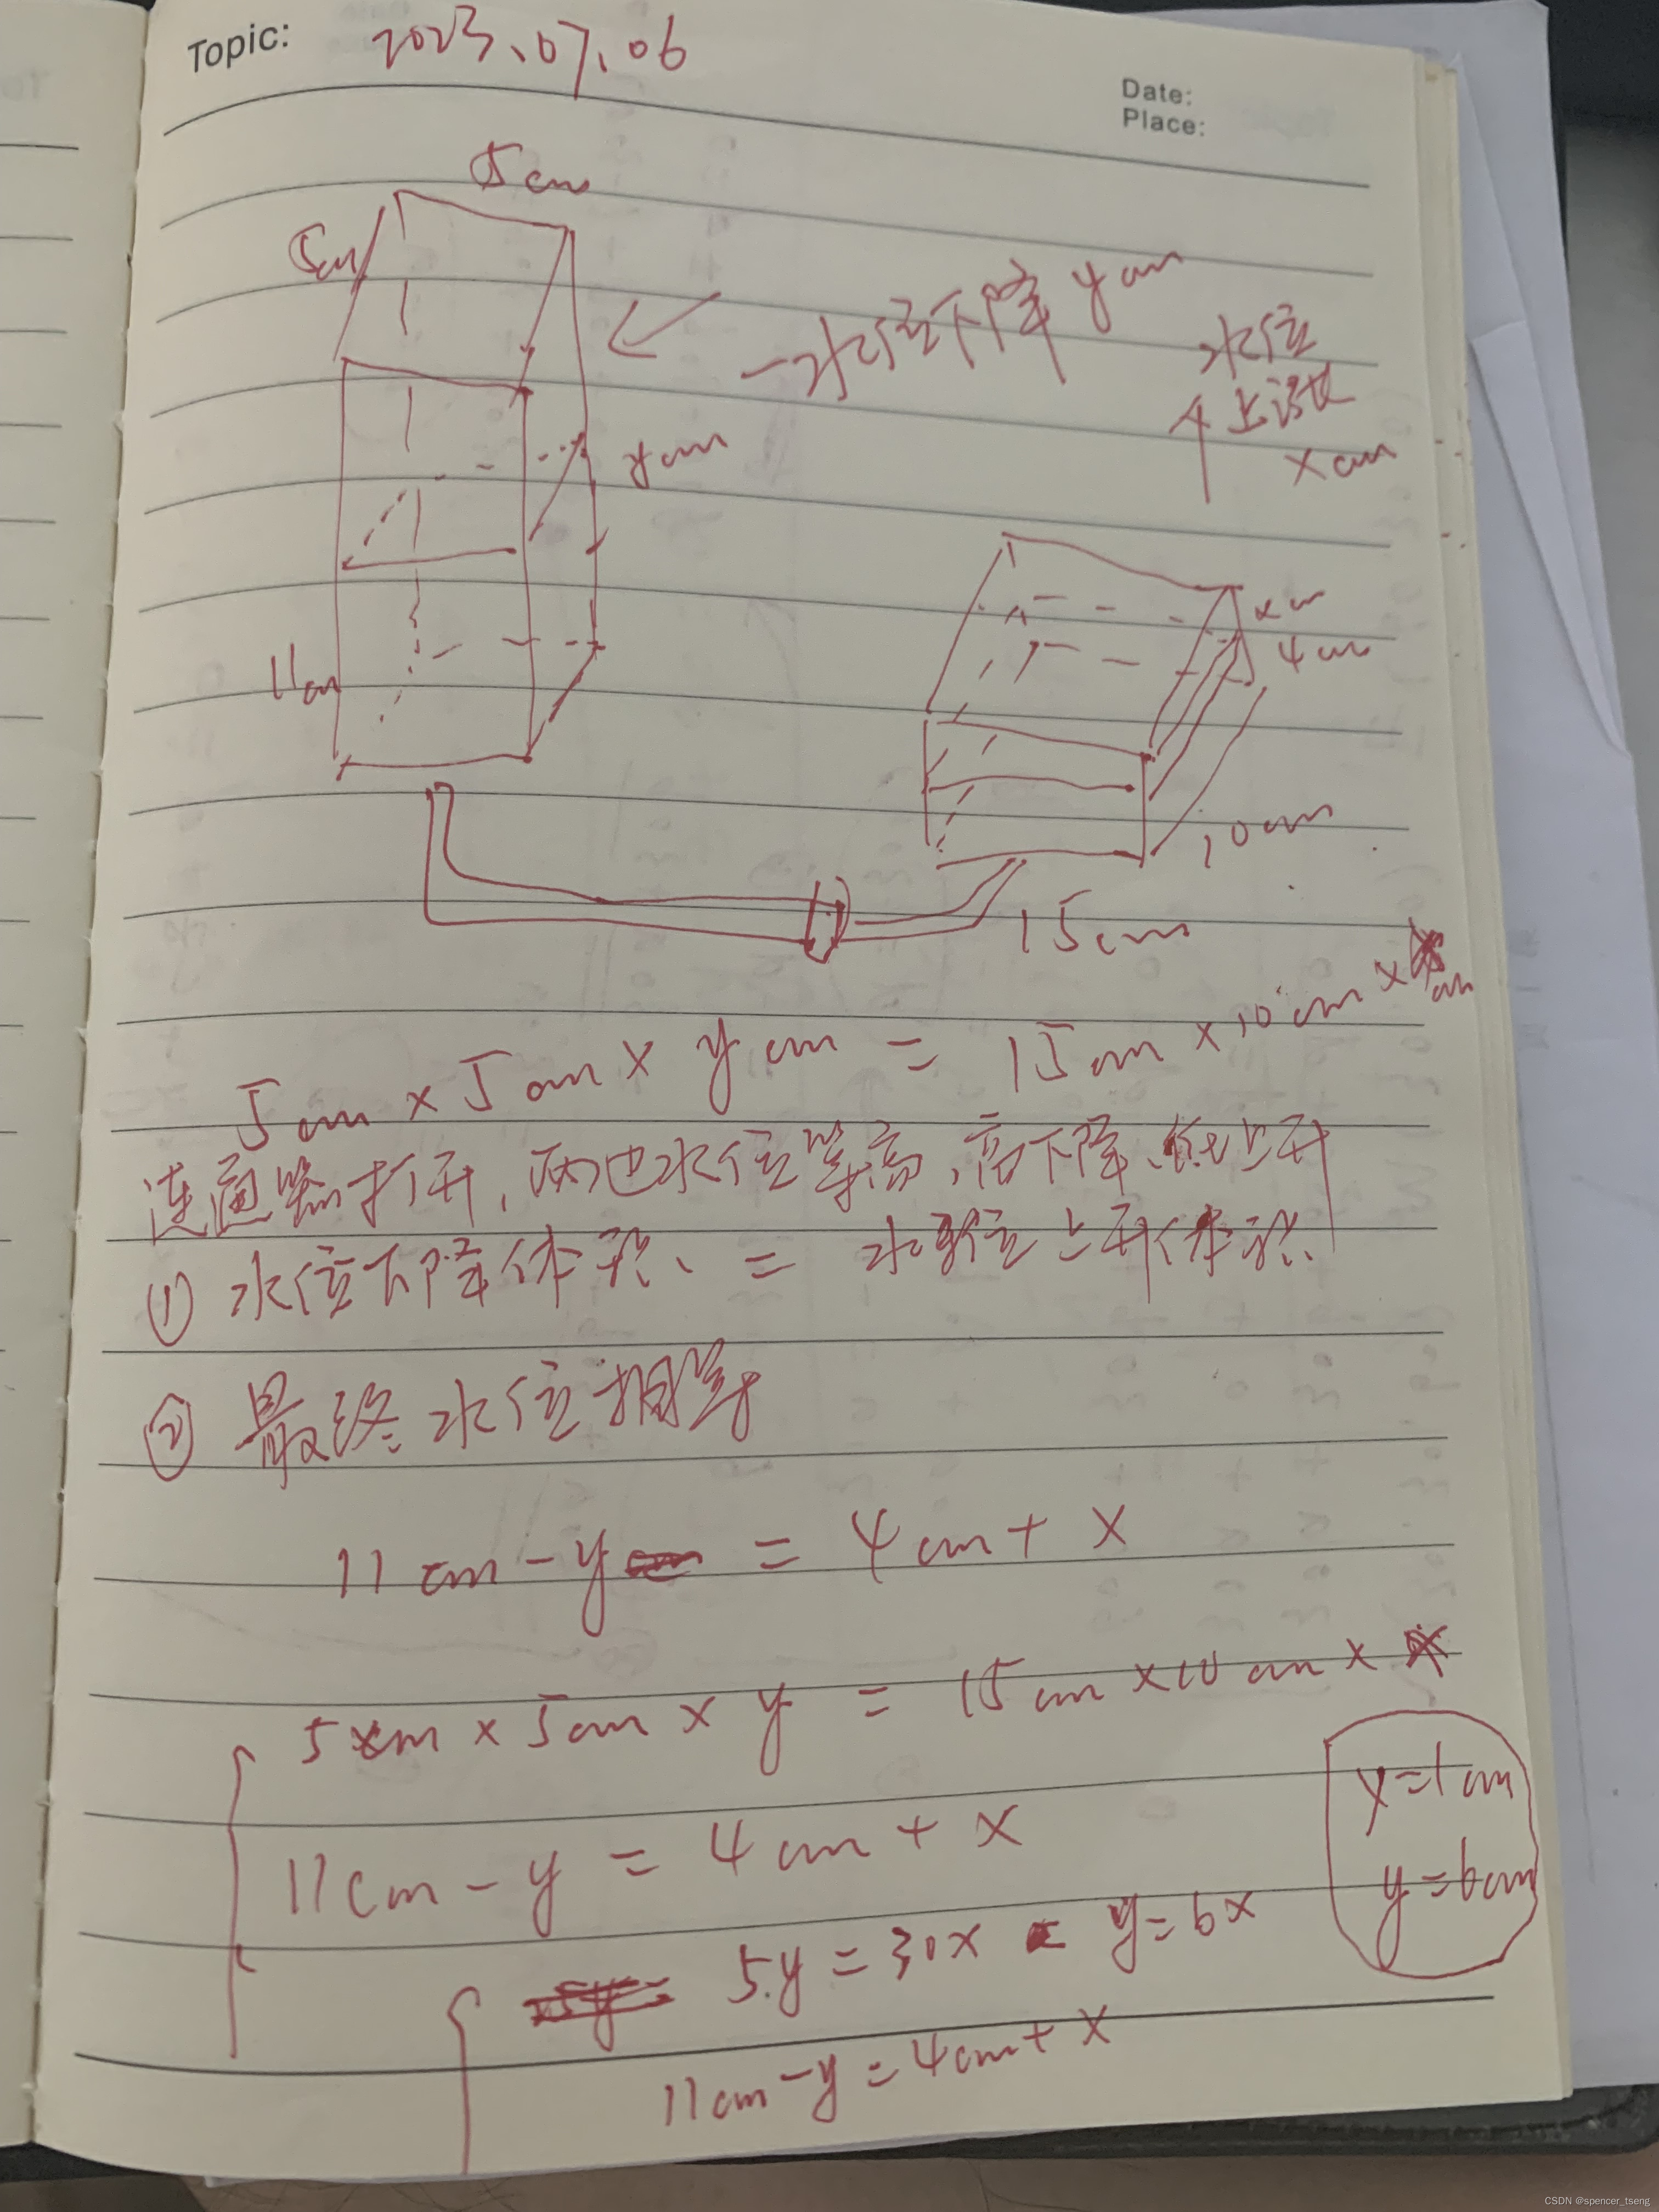 Topic: 2023.07.06
Date:
Place:
5cm
5cm
水位下降 ycm
水位
上涨
xcm
ycm
xcm
4cm
11cm
10cm
15cm
5cm × 5cm × ycm = 15cm × 10cm × xcm
连通器打开,两边水位等高,高下降、低上升
① 水位下降体积 = 水位上升体积
② 最终水位相等
11cm - y = 4cm + x
5cm × 5cm × y = 15cm × 10cm × x
11cm - y = 4cm + x
x=1cm
y=6cm
5y = 30x y = 6x
11cm - y = 4cm + x
CSDN @spencer_tseng